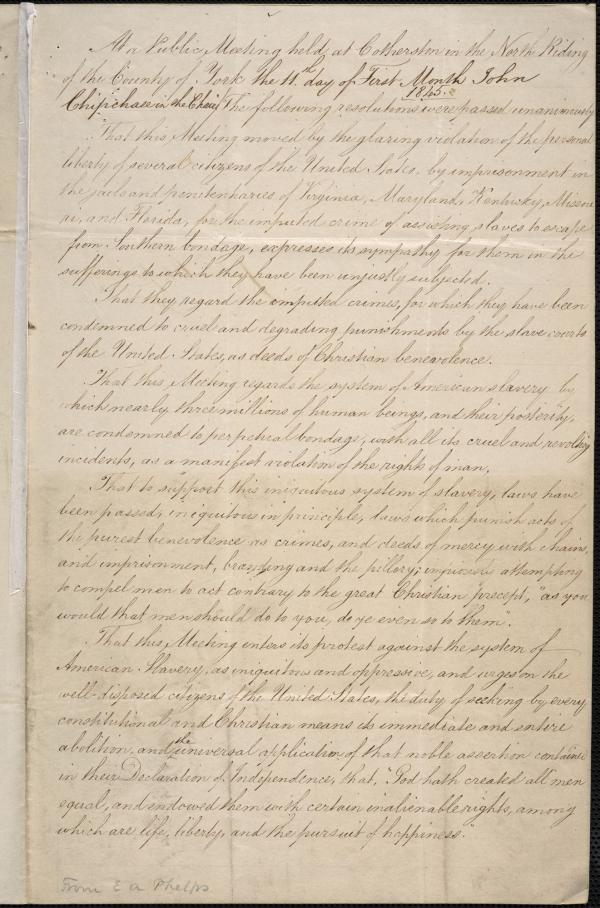 At a Public Meeting held at Cotherston in the North Riding
of the County of York the 11th day of First Month 1845. John
Chipchase in the Chair, The following resolutions were passed unanimously
That this Meeting moved by the glaring violation of the personal
liberty of several citizens of the United States, by imprisonment in
the jails and penitentiaries of Virginia, Maryland, Kentucky, Missou
ri, and Florida, for the imputed crime of assisting slaves to escape
from Southern bondage, expresses its sympathy for them in the
sufferings to which they have been unjustly subjected.
That they regard the imputed crimes, for which they have been
condemned to cruel and degrading punishments by the slave courts
of the United States, as deeds of Christian benevolence.
That this Meeting regards the system of American slavery by
which nearly three millions of human beings, and their posterity,
are condemned to perpetual bondage, with all its cruel and revolting
incidents, as a manifest violation of the rights of man.
That to support this iniquitous system of slavery, laws have
been passed, iniquitous in principle, laws which punish acts of
the purest benevolence as crimes, and deeds of mercy with chains,
and imprisonment, branding and the pillory; impiously attempting
to compel men to act contrary to the great Christian precept, "as you
would that men should do to you, do ye even so to them".
That this Meeting enters its protest against the system of
American Slavery, as iniquitous and oppressive, and urges on the
well-disposed citizens of the United States, the duty of seeking by every
constitutional and Christian means its immediate and entire
abolition, and the universal application of that noble assertion contained
in their Declaration of Independence, that, "God hath created all men
equal, and endowed them with certain inalienable rights, among
which are life, liberty, and the pursuit of happiness."
From E A Phelps